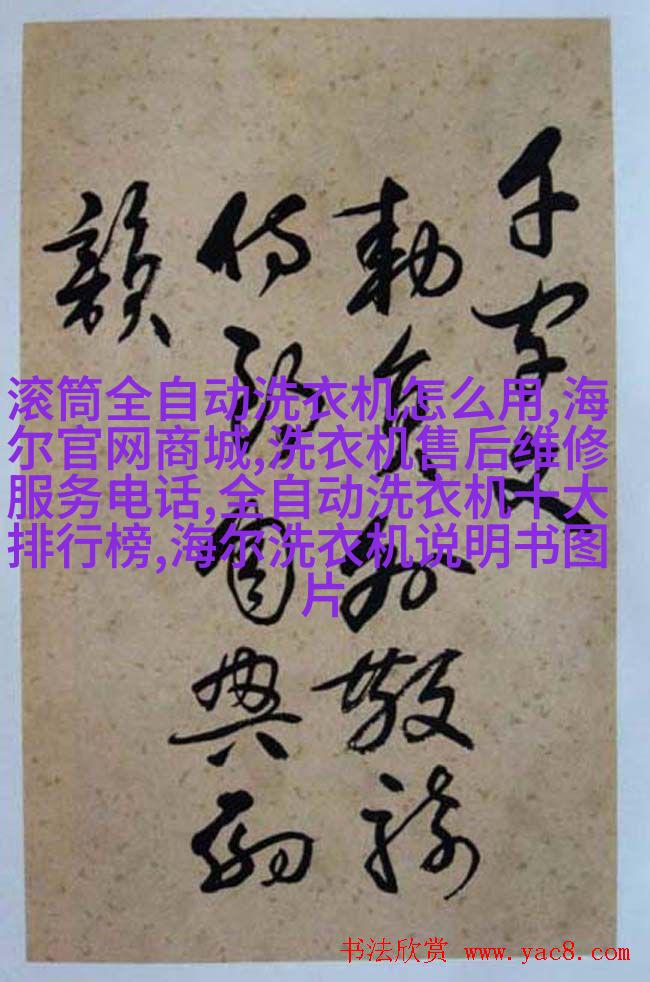 千字文
勅員外散騎
侍郎周興嗣
韻
滚筒全自动洗衣机怎么用,海
尔官网商城,洗衣机售后维修
服务电话,全自动洗衣机十大
排行榜,海尔洗衣机说明书图
片
书法欣赏 www.yac8.com